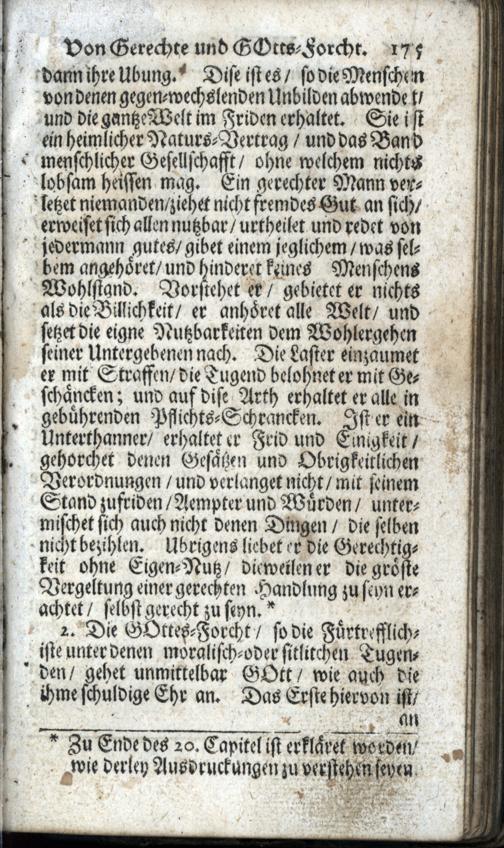 Von Gerechte und GOtts-Forcht. 175
dann ihre Ubung. Dise ist es / so die Menschen
von denen gegen-wechslenden Unbilden abwendet/
und die gantze Welt im Friden erhaltet. Sie ist
ein heimlicher Naturs-Vertrag / und das Band
menschlicher Gesellschafft / ohne welchem nichts
lobsam heissen mag. Ein gerechter Mann ver-
letzet niemanden/ziehet nicht fremdes Gut an sich/
erweiset sich allen nutzbar / urtheilet und redet von
jedermann gutes/ gibet einem jeglichem / was sel-
bem angehöret/ und hinderet keines Menschens
Wohlstand. Vorstehet er / gebietet er nichts
als die Billichkeit / er anhöret alle Welt / und
setzet die eigne Nutzbarkeiten dem Wohlergehen
seiner Untergebenen nach. Die Laster einzaumet
er mit Straffen/ die Tugend belohnet er mit Ge-
schäncken; und auf dise Arth erhaltet er alle in
gebührenden Pflichts-Schrancken. Ist er ein
Unterthanner/ erhaltet er Frid und Einigkeit /
gehorchet denen Gesätzen und Obrigkeitlichen
Verordnungen / und verlanget nicht / mit seinem
Stand zufriden / Aempter und Würden / unter-
mischet sich auch nicht denen Dingen / die selben
nicht bezihlen. Ubrigens liebet er die Gerechtig-
keit ohne Eigen-Nutz / dieweilen er die gröste
Vergeltung einer gerechten Handlung zu seyn er-
achtet / selbst gerecht zu seyn. *
2. Die GOttes-Forcht / so die Fürtrefflich-
iste unter denen moralisch-oder sitlitchen Tugen-
den / gehet unmittelbar GOtt / wie auch die
ihme schuldige Ehr an. Das Erste hiervon ist/
an
* Zu Ende des 20. Capitel ist erkläret worden/
wie derley Ausdruckungen zu verstehen seyen.